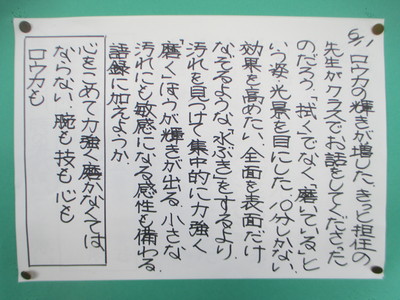 6/1 ロウカの輝きが増した。きっと担任の
先生がクラスでお話をしてくださった
のだろう。「拭く」でなく「磨いている」と
いう姿、光景を目にした。10分しかない。
効果を高めたい。全面を表面だけ
なぞるような「水ぶき」をするより、
汚れを見つけて集中的に力強く
「磨く」ほうが輝きが出る。小さな
汚れにも敏感になる感性も備わる。
語録に加えようか。
心をこめて力強く磨かなくては
ならない。腕も 技も 心も
ロウカも